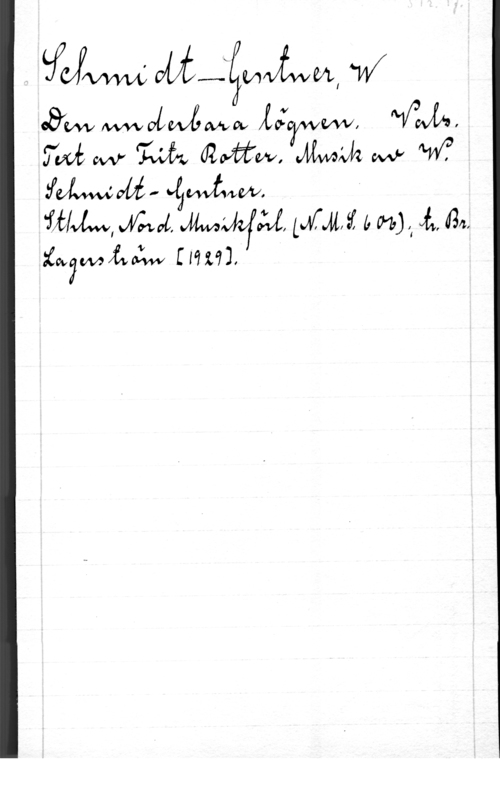 Schmidt-Gentner, W
Den underbara lögnen. Vals.
Text av Fritz Rotter. Musik av W.
Schmidt-Gentner.
Sthlm, Nord. Musikförl. (N.M.S. 606); tr. Br.
Lagerström [1929].